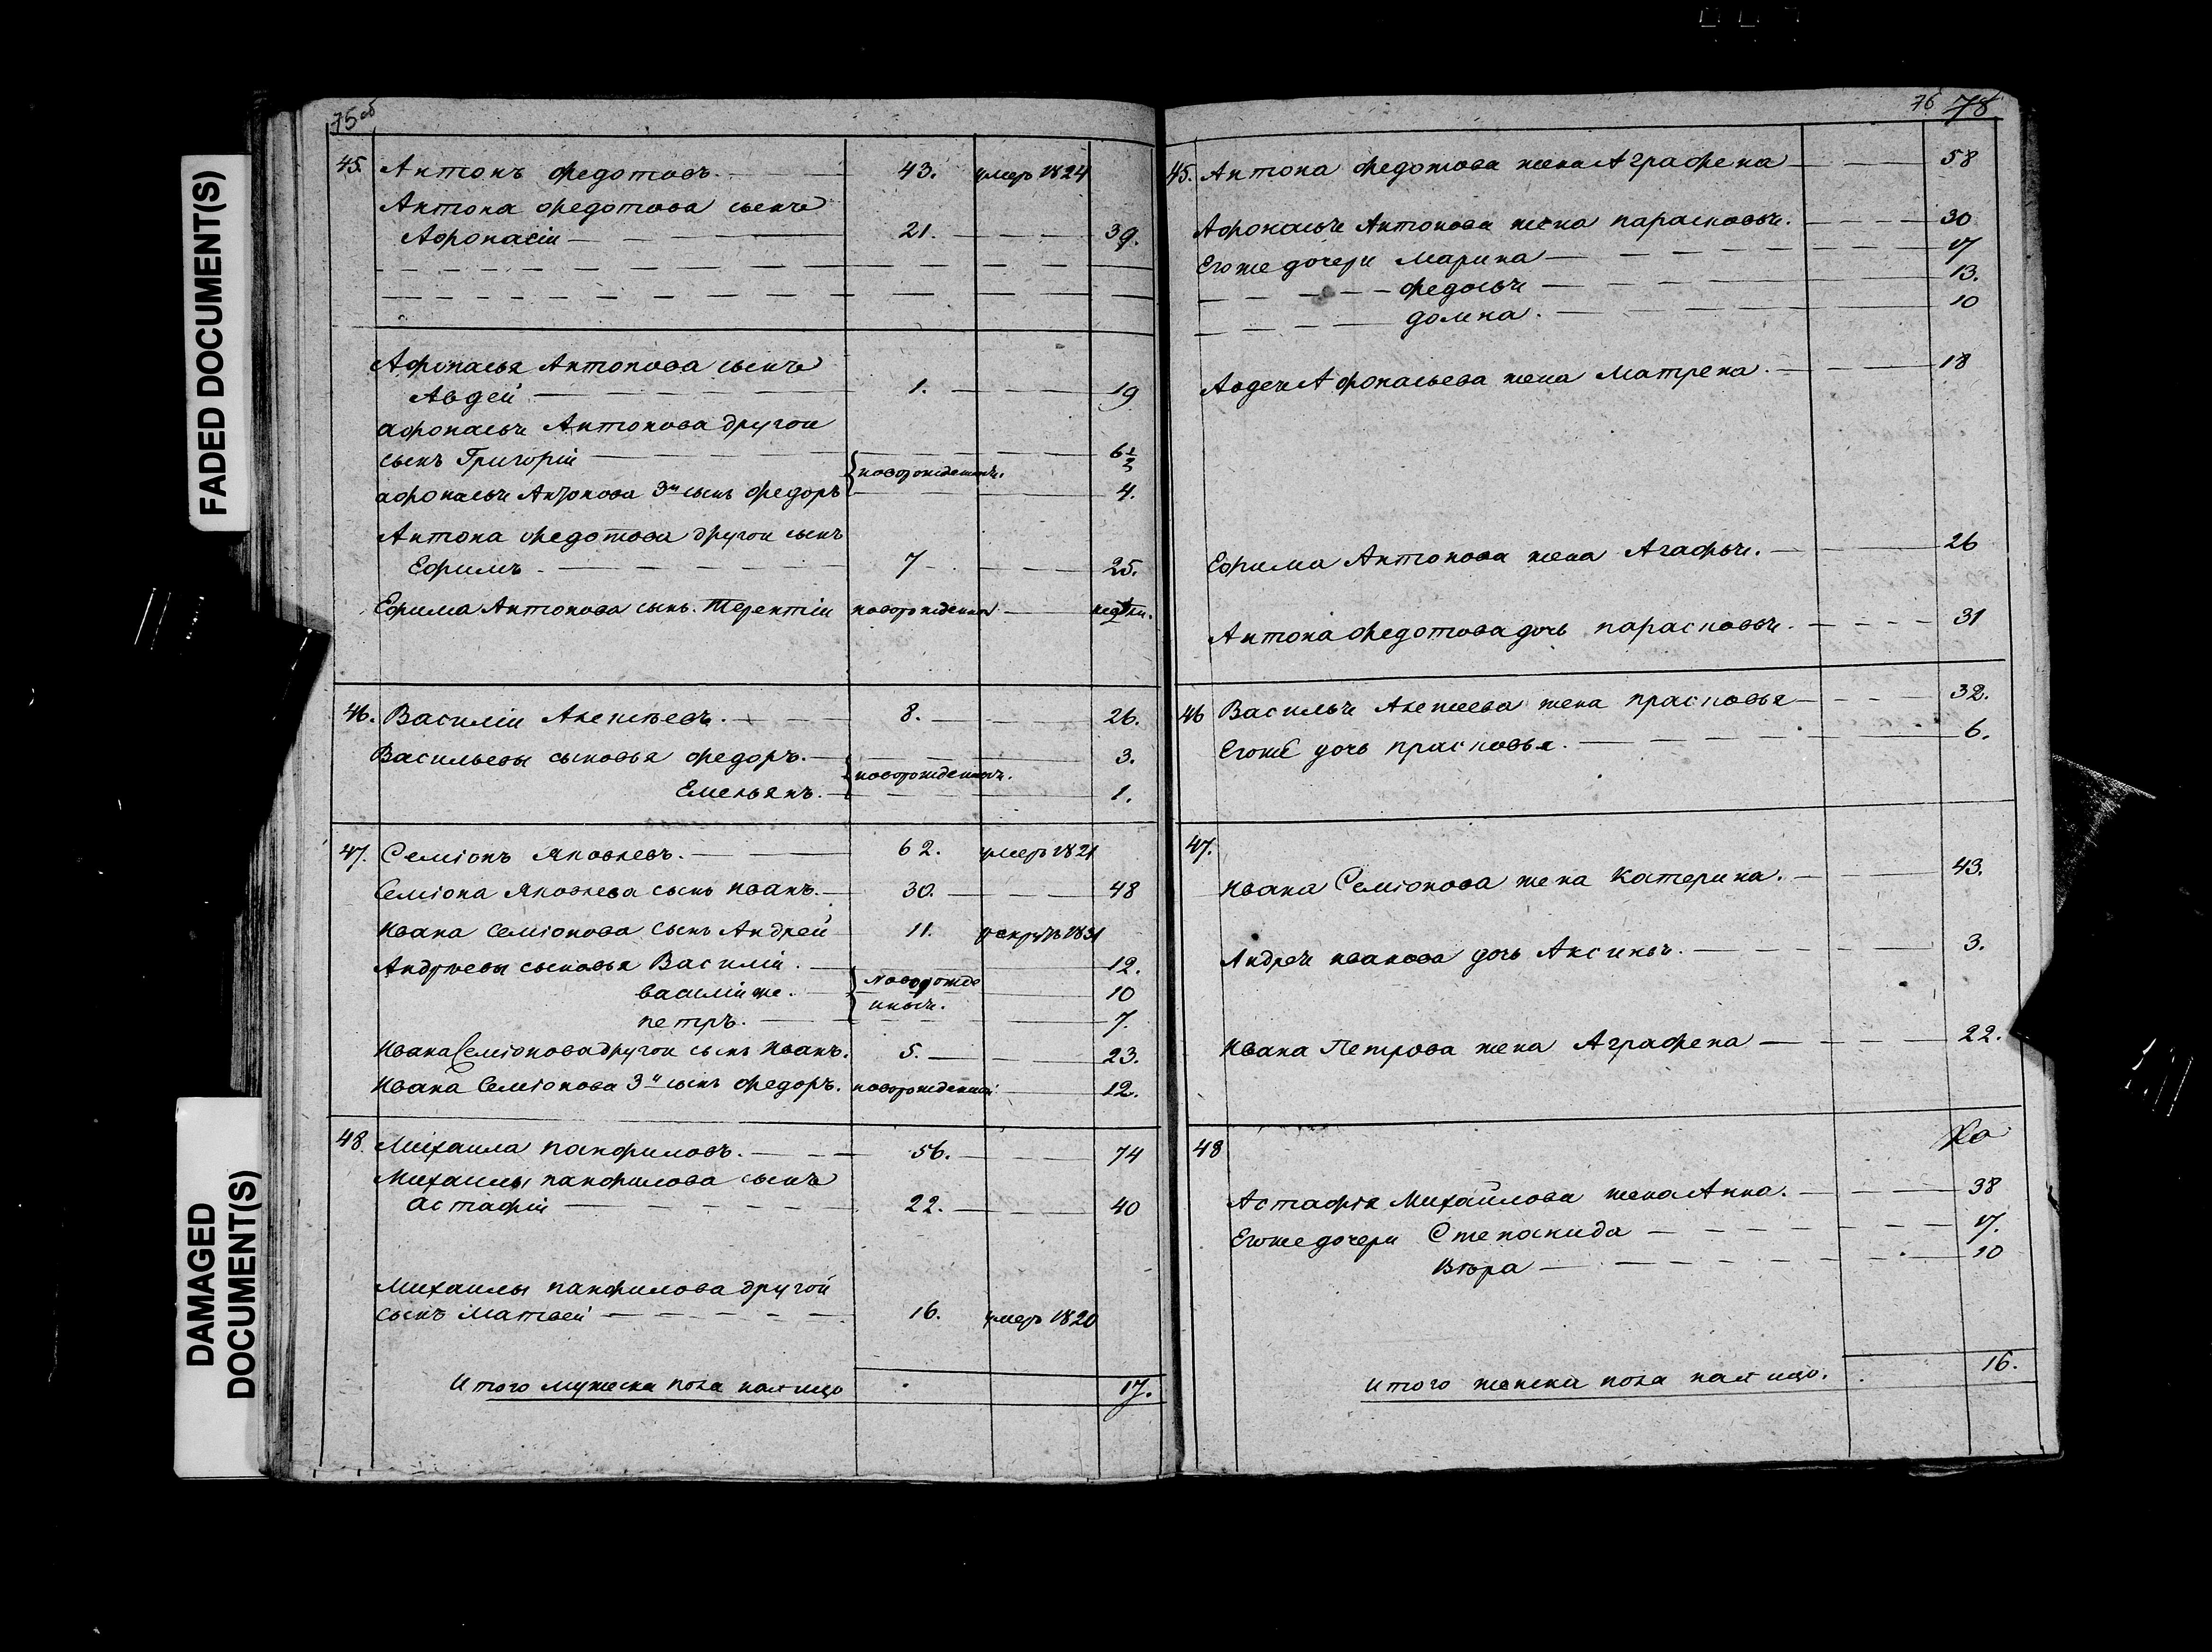 FADED DOCUMENT(S)
DAMAGED
DOCUMENT(S)
75об
45. Антонъ Федотовъ. 43. умеръ 1824
Антона Федотова сынъ
Афонасіи 21. 39.
Афонасья Антонова сынъ
Авдей 1. 19
Афонасья Антонова другои
сынъ Григоріи 6 1/2
новорожденныя.
Афонасья Антонова 3й сынъ Федоръ 4.
Антона Федотова другои сынъ
Ефимъ. 7 25.
Ефима Антонова сынъ. Терентіи новорожденной
46. Василіи 8. 26.
Васильевы сыновья Федоръ. 3.
новорожденныя.
Емельянъ. 1.
47. Семіонъ Яковлевъ. 62. умеръ 1821
Семіона Яковлева сынъ Иванъ. 30. 48
Ивана Семіонова сынъ Андрей 11. рекрутъ 1831
Андреевы сыновья Василіи. 12.
Новорожде
Василіи же. 10
нныя.
Петръ. 7.
Ивана Семіонова другои сынъ Иванъ. 5. 23.
Ивана Семіонова 3й сынъ Федоръ. новорожденной 12.
48. Михаила Панфиловъ. 56. 74
Михаилы Панфилова сынъ
Астафіи 22. 40
Михаилы Панфилова другой
сынъ Матвей 16. умеръ 1820
Итого мужеска пола налицо 17.
76 78
45. Антона Федотова жена Аграфена 58
Афонасья Антонова жена Парасковья. 30
Егоже дочери Марина 17
Федосья 13.
Домна. 10
Авдея Афонасьева жена Матрена. 18
Ефима Антонова жена Агафья. 26
Антона Федотова дочь Парасковья. 31
46 Василья жена Прасковья 32.
Егоже дочь Прасковья. 6.
47.
Ивана Семіонова жена Катерина. 43.
Андрея Иванова дочь Аксинья. 3.
Ивана Петрова жена Аграфена 22.
48
Астафія Михайлова жена Анна. 38
Егоже дочери Степанида 17.
Вѣра 10
Итого женска пола налицо. 16.